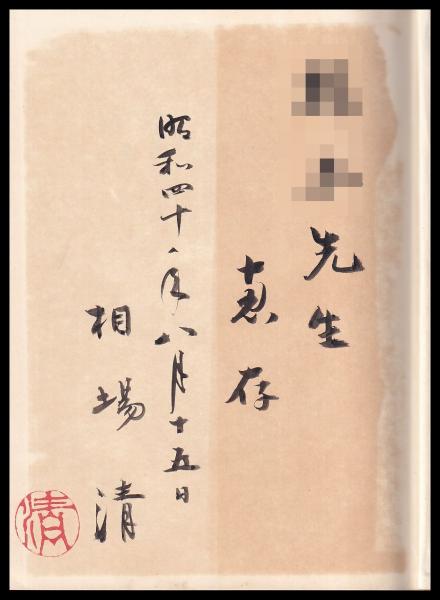 先生
恵存
昭和四十一年八月十五日
相場 清
清